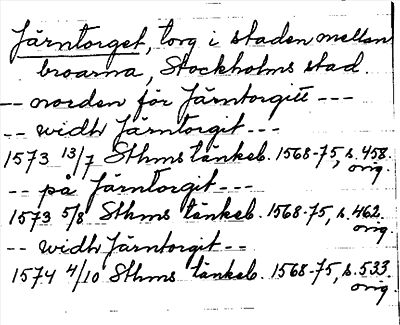 Järntorget, torg i staden mellan
broarna, Stockholms stad.
-- norden för Järntorgitt ---
-- widh Järntorgit ---
1573 13/7 Sthms tänkeb. 1568-75, s. 458.
orig.
-- på Järntorgit ---
1573 5/8 Sthms tänkeb. 1568-75, s. 462.
orig.
-- widh Järntorgit --
1574 4/10 Sthms tänkeb. 1568-75, s. 533.
orig.